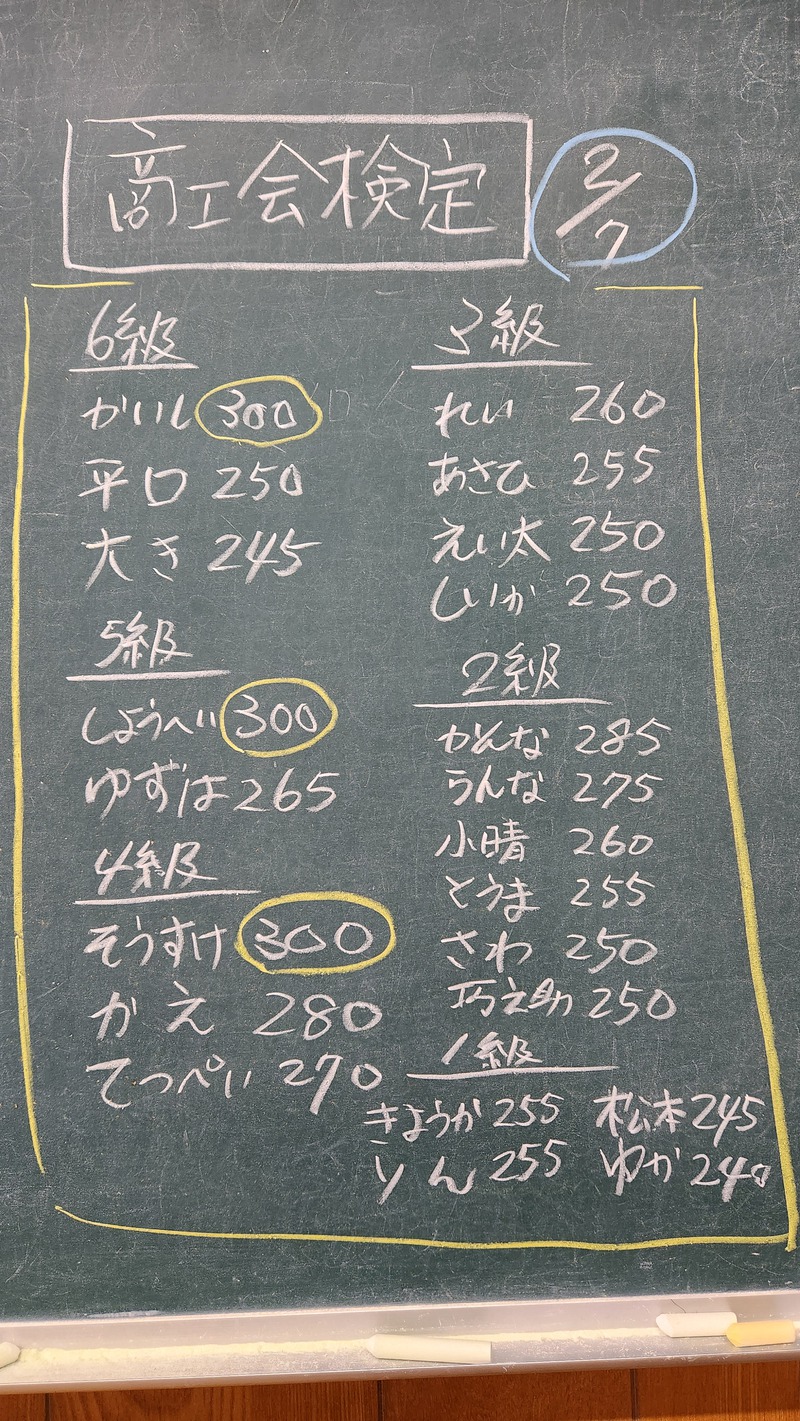 商工会検定
2/7
6級
かいし 300
平口 250
大き 245
5級
しょうへい 300
ゆずは 265
4級
そうすけ 300
かえ 280
てっぺい 270
3級
れい 260
あさひ 255
えい太 250
しいか 250
2級
かんな 285
らんな 275
小晴 260
とうま 255
さわ 250
巧之助 250
1級
きょうか 255 松本 245
りん 255 ゆか 240